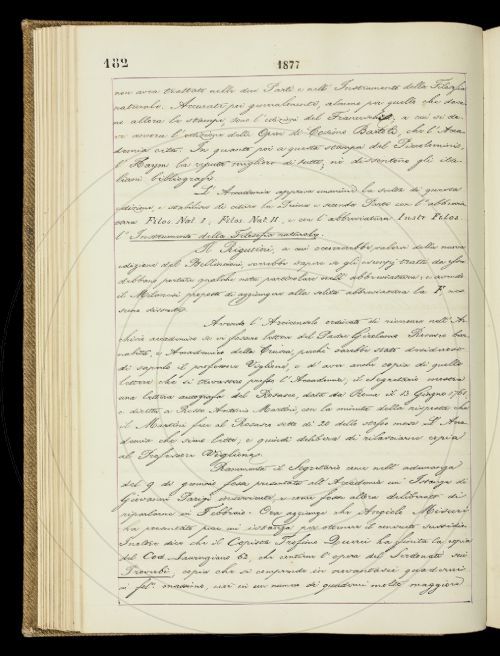 182
1877
non avea trattate nelle due Parti e nell' Instrumento della Filosofia
naturale. Accurate poi generalmente, almeno per quello che dove-
no allora le stampe, sono l'edizioni del a cui si de-
ve ancora l'edizione delle Opere di Cosimo Bartoli, che l'Acca-
demia cita. In quanto poi a questa stampa del
l'Haym la reputa migliore di tutte, nè dissentono gli ita-
liani bibliografi.
L'Accademia approva unanime la scelta di questa
edizione, e stabilisce di citare la Prima e seconda Parte con l'abbrevia-
tura Filos. Nat. I, Filos. Nat. II, e con l'abbreviatura Instr. Filos.
l'Instrumento della Filosofia naturale.
Il Rigutini, a cui della nuova
edizione del Bellincioni, vorrebbe sapere se gli esempj tratti da
debbano portare qualche nota particolare nell'abbreviatura; e avendo
il Milanesi proposto di aggiungere alla solita abbreviatura la F. nes-
suno dissente.
Avendo l'Arciconsolo ordinato di ricercare nell'Ar-
chivio accademico se vi fossero lettere del Padre Girolamo Rosasco bar-
nabita, e Accademico della Crusca, perchè sarebbe stato desideroso
di saperlo il professore e d'aver anche copia di quelle
lettere che si trovassero presso l'Accademia, il Segretario mostra
una lettera autografa del Rosasco, data da Roma il 13 Giugno 1761
e diretta a Rosso Antonio Martini con la minuta della risposta che
il Martini fece al Rosasco sotto dì 20 dello stesso mese. L'Acca-
demia che siano lette, e quindi delibera di rilasciarne copia
al Professore
Rammenta il Segretario come nell'adunanza
del 9 di gennaio fosse presentata all'Accademia un'Istanza di
Giovanni e come fosse allora deliberato di
riparlarne in Febbraio. Ora aggiunge che Angiolo
ha presentata pure un'istanza per ottenere il consueto sussidio.
Inoltre dice che il Copista Trofimo ha finita la copia
del Cod. Laurenziano 62, che contiene l'opera del Serdonati sui
Proverbi, copia che si comprende in quaderni
in fol. massimo, cioè in un numero di quaderni molto maggiore